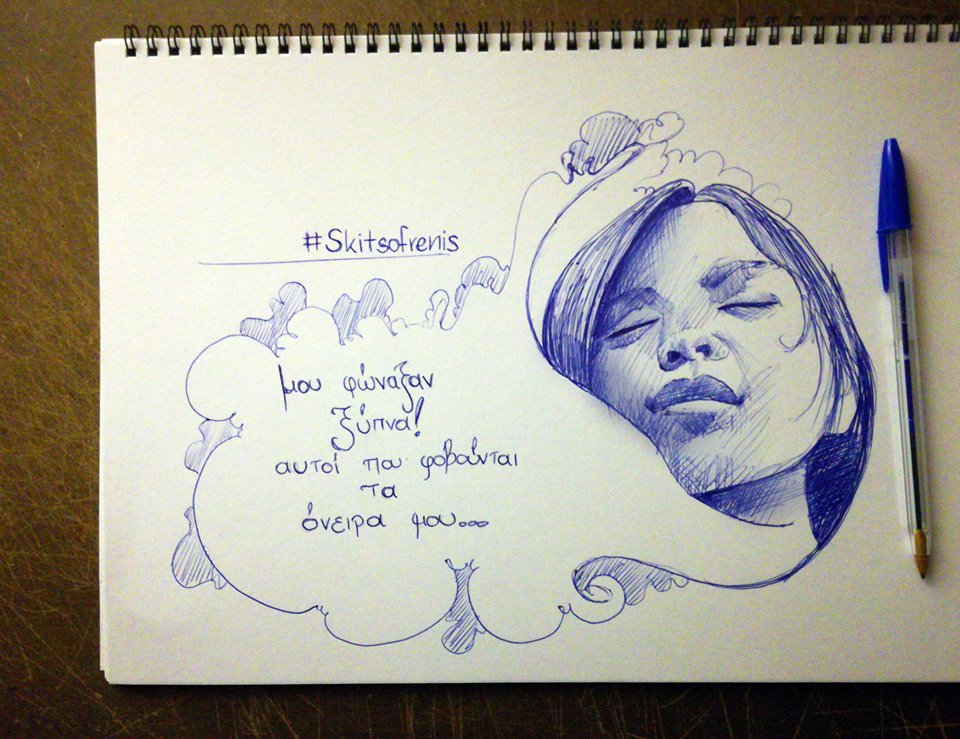 #Skitsofrenis
μου φώναξαν
ξύπνα!
αυτοί που φοβούνται
τα
όνειρα μου...